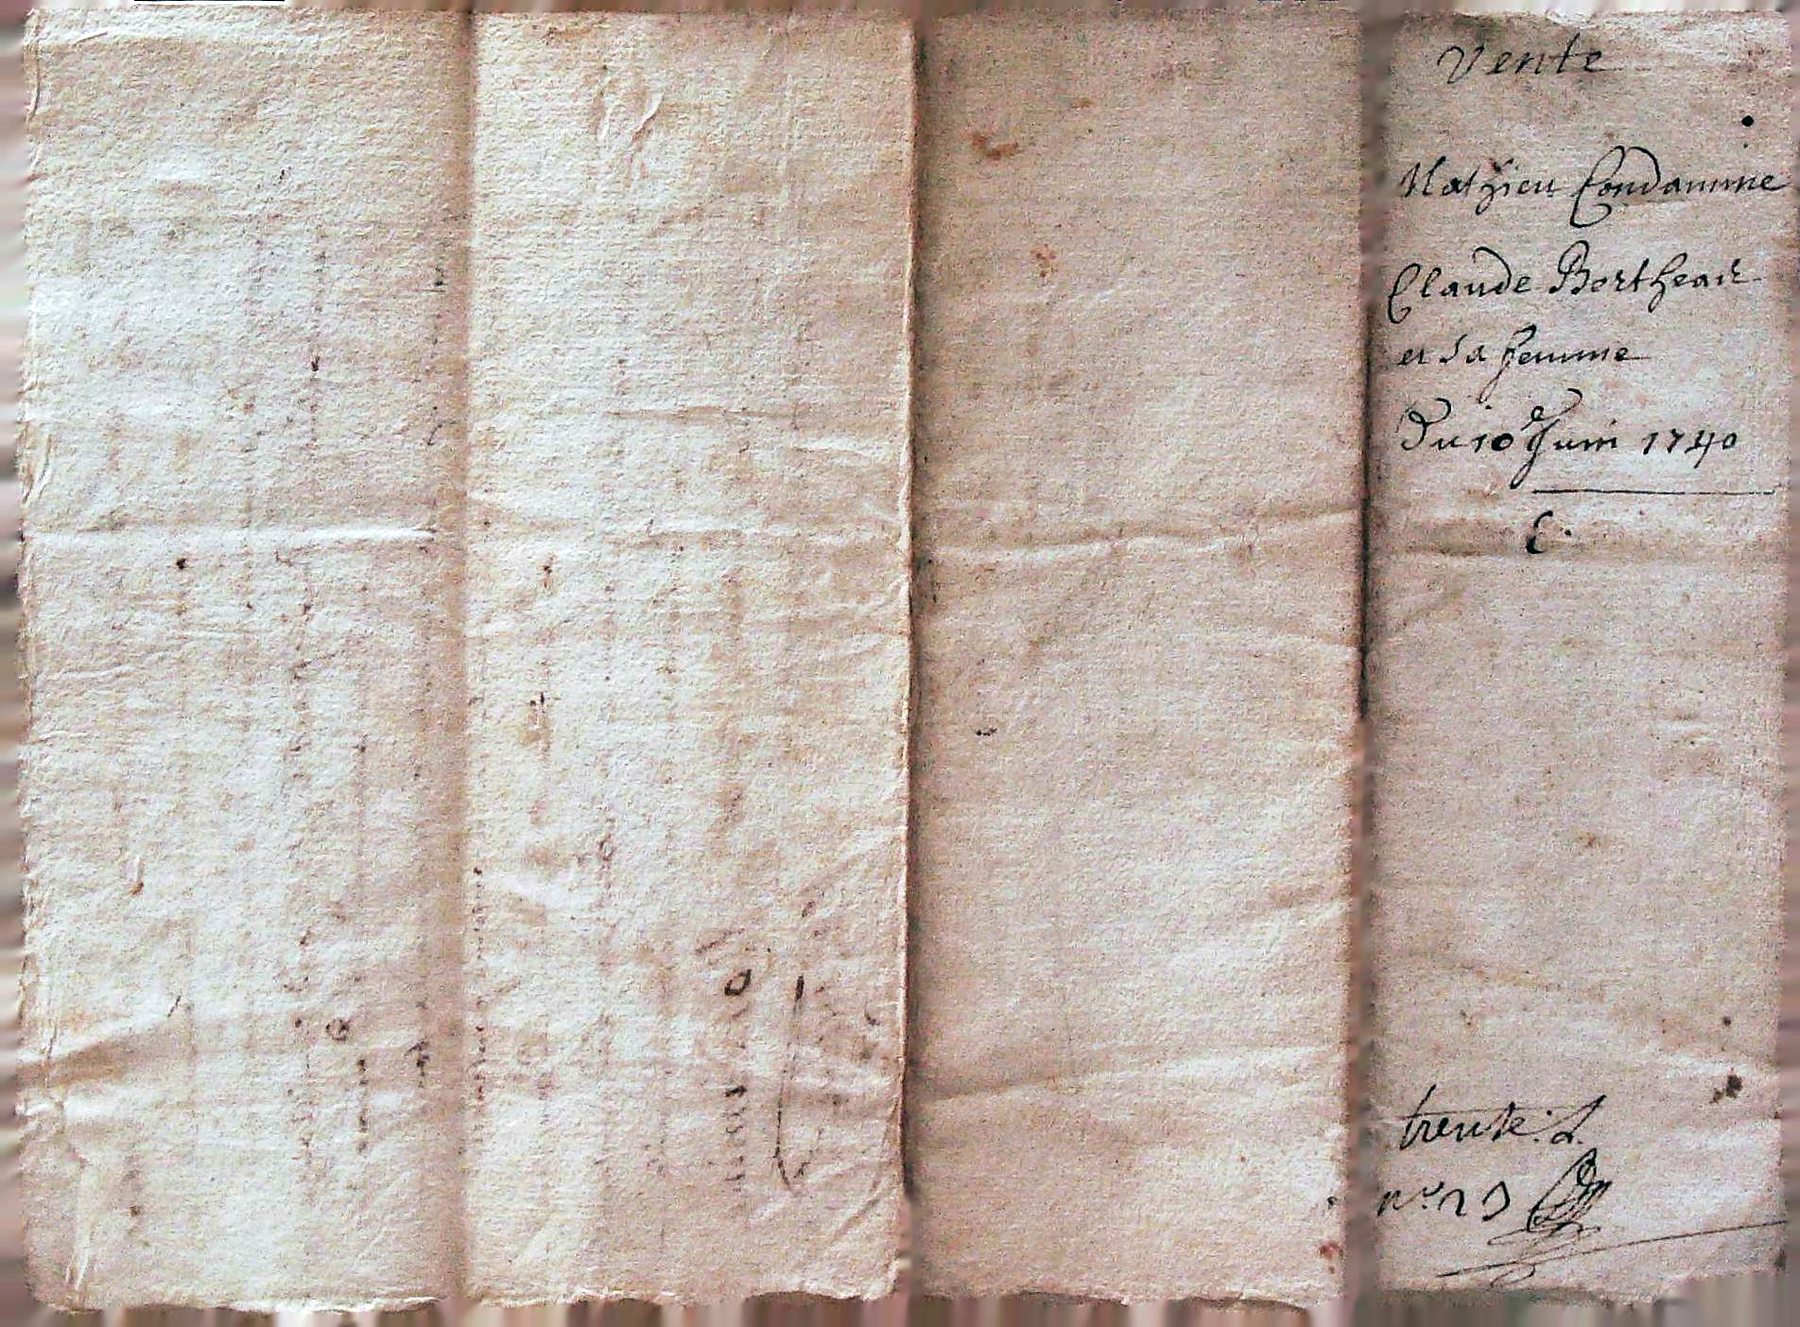 Vente
Mathieu Condamine
Claude Borthear
et sa femme
Du 10e Juin 1740
C.
trente.